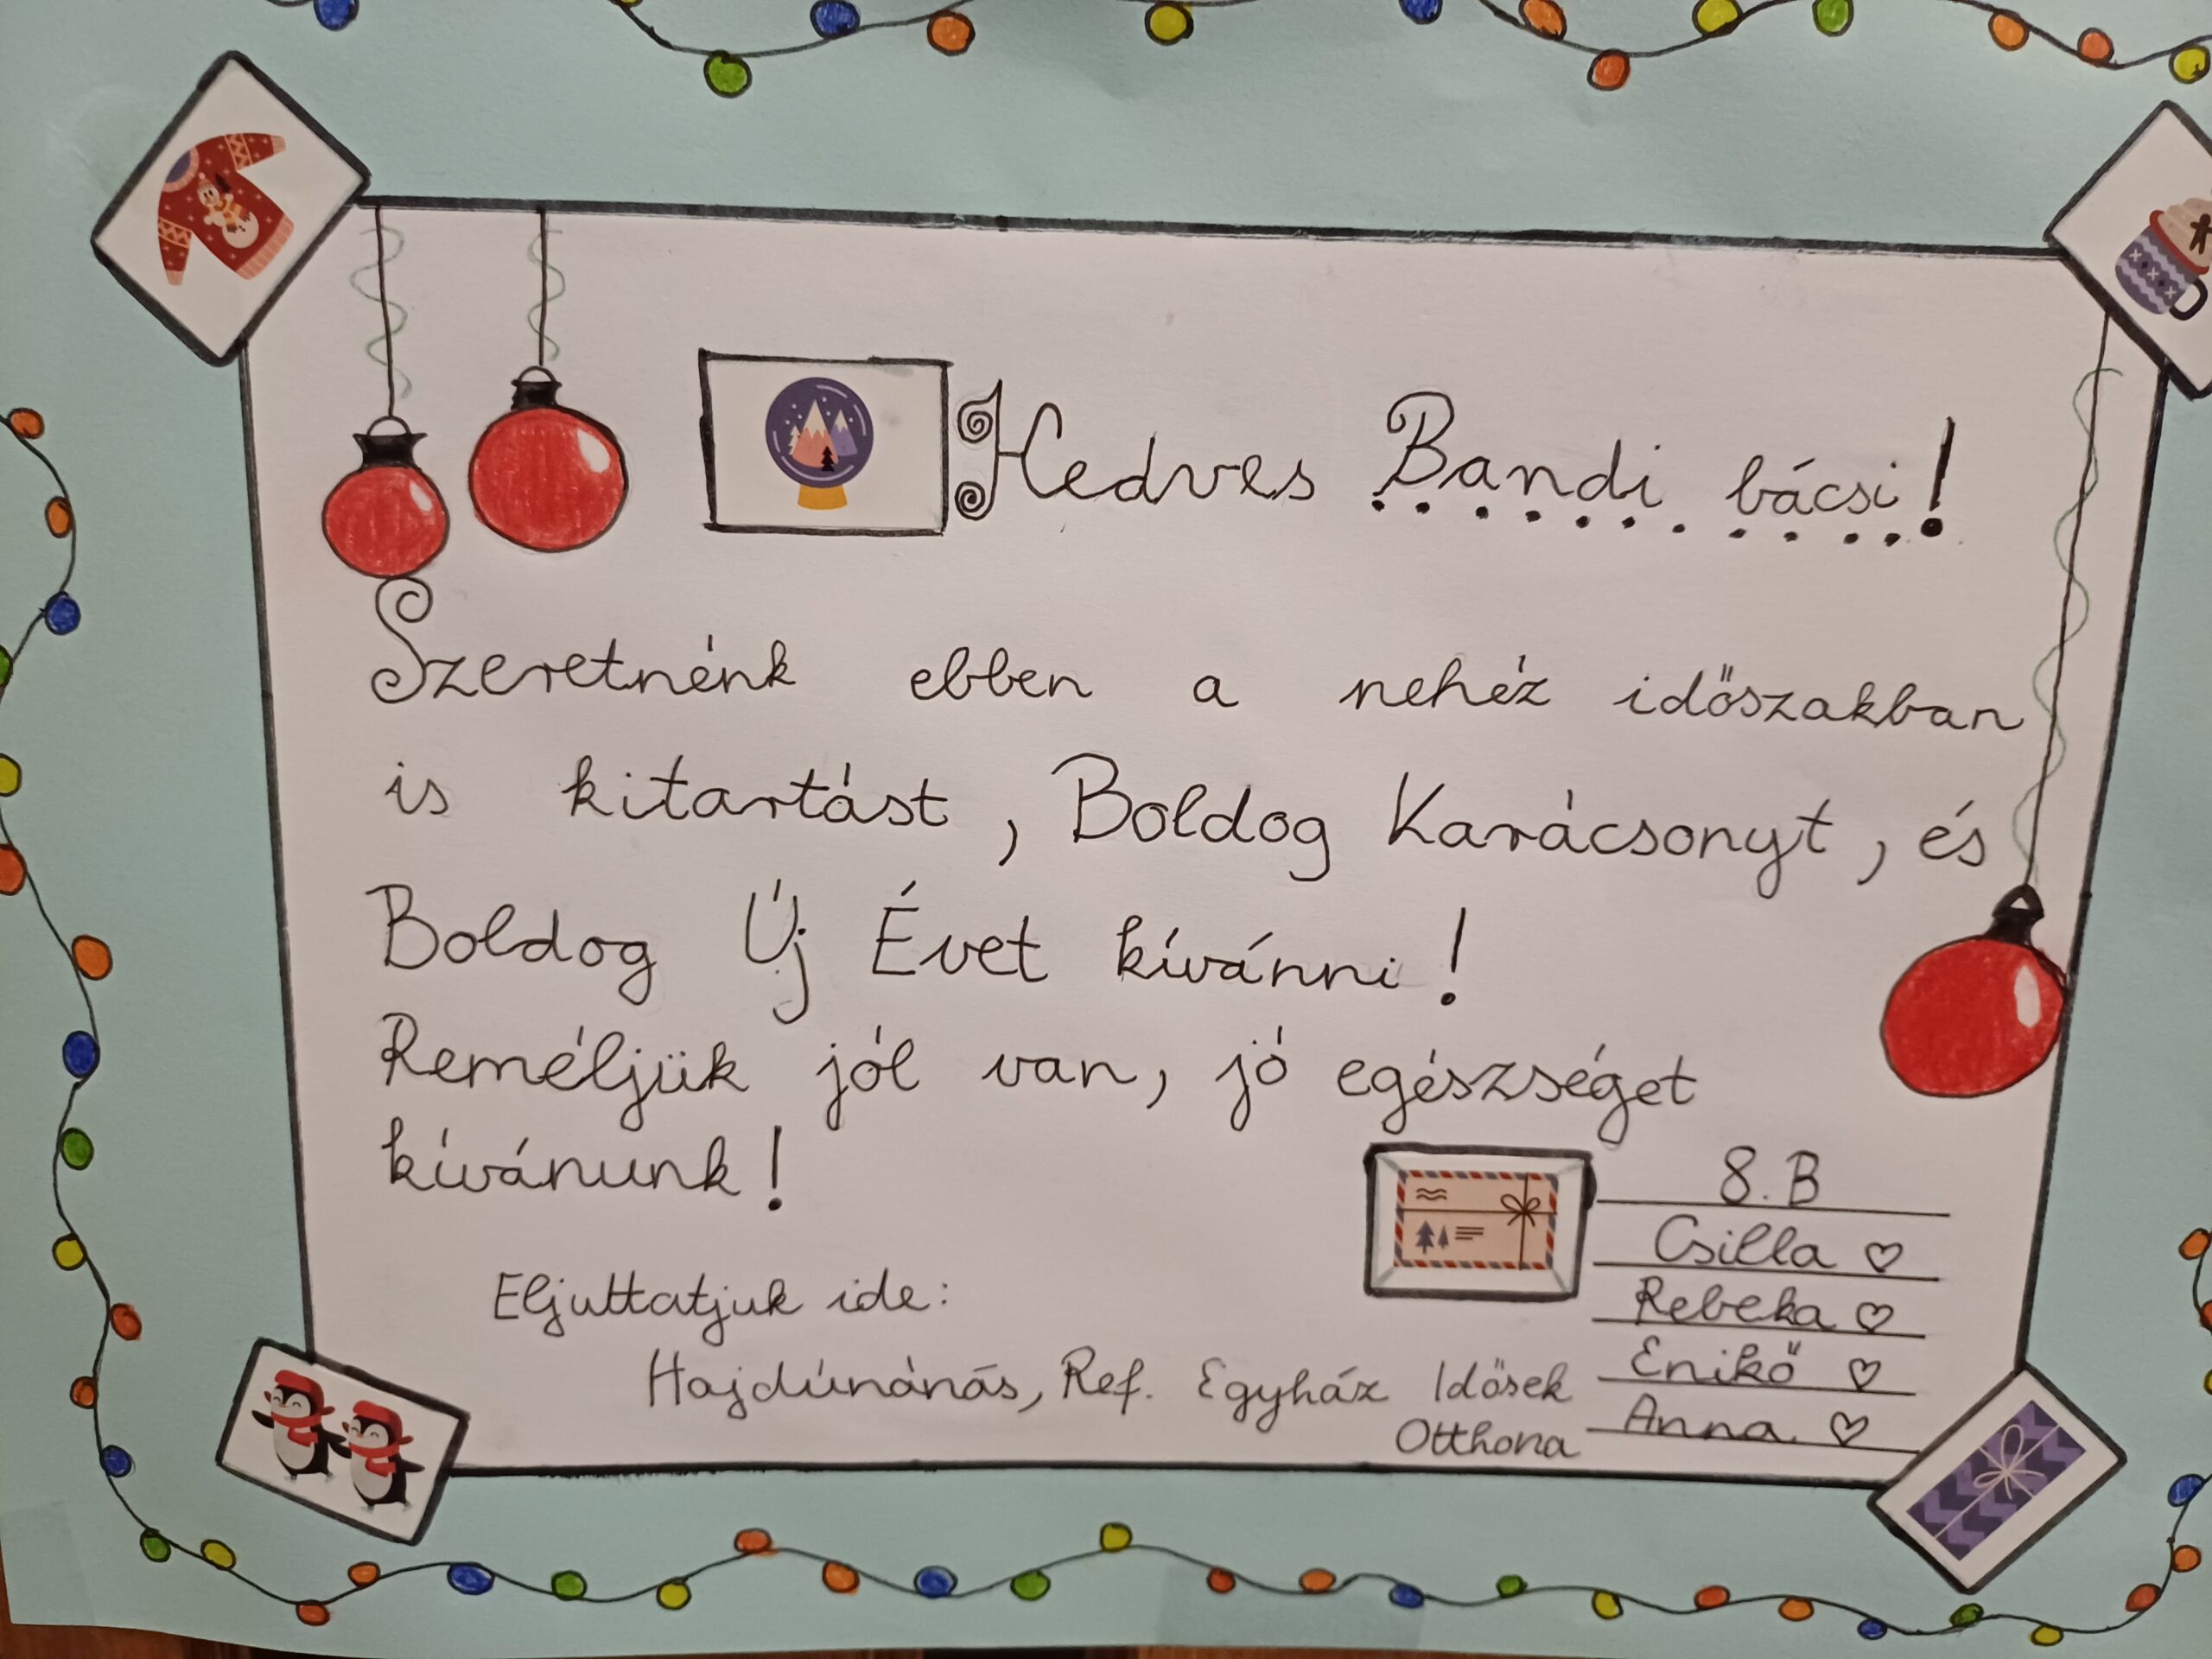 Kedves Bandi bácsi!
Szeretnénk ebben a nehéz időszakban
is kitartást, Boldog Karácsonyt, és
Boldog Új Évet kívánni!
Reméljük jól van, jó egészséget
kívánunk!
8.B
Csilla ♡
Rebeka ♡
Enikő ♡
Anna ♡
Eljuttatjuk ide:
Hajdúnánás, Ref. Egyház Idősek
Otthona